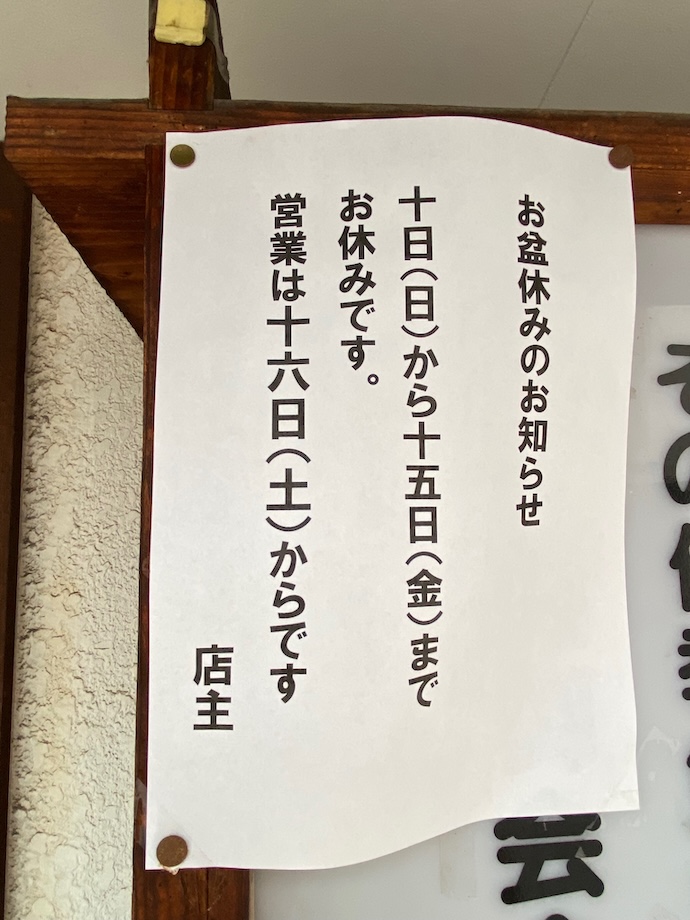 お盆休みのお知らせ
十日(日)から十五日(金)まで
お休みです。
営業は十六日(土)からです
店主